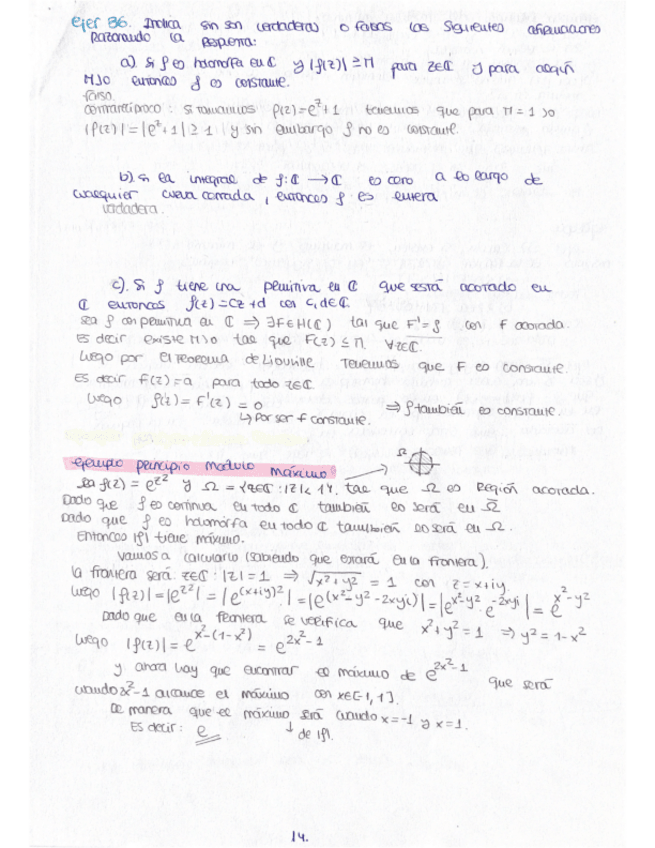 Ejer 36. Indica sin son verdaderas o falsas las siguientes afirmaciones
razonando la respuesta:
a) Si f es holomorfa en ℂ y |f(z)| ≥ M para z∈ℂ y para algún
M>0 entonces f es constante.
falso.
contrarrecíproco: si tomamos f(z)=e^z+1 tenemos que para M=1>0
|f(z)| = |e^z+1| ≥ 1 y sin embargo f no es constante.
b) si la integral de f: ℂ → ℂ es cero a lo largo de
cualquier curva cerrada, entonces f es entera
verdadera.
c) Si f tiene una primitiva en ℂ que está acotado en
ℂ entonces f(z) = cz+d con c,d∈ℂ.
sea f con primitiva en ℂ ⟹ ∃F∈H(ℂ) tal que F'=f con F acotada.
Es decir existe M>0 tal que F(z) ≤ M. ∀z∈ℂ.
Luego por el Teorema de Liouville tenemos que F es constante.
Es decir F(z)=a para todo z∈ℂ.
Luego f(z) = F'(z) = 0 ⟹ f también es constante.
↳ Por ser f constante.
ejemplo principio modulo máximo: Ω
Sea f(z) = e^{z^2} y Ω = {z∈ℂ: |z|<1}. tal que Ω es Región acotada.
Dado que f es continua en todo ℂ también lo será en Ω̅
Dado que f es holomorfa en todo ℂ también lo será en Ω.
Entonces |f| tiene máximo.
Vamos a calcularlo (sabiendo que estará en la frontera).
la frontera será: z∈ℂ: |z|=1 ⟹ √(x²+y²) = 1 con z=x+iy.
Luego |f(z)| = |e^{z^2}| = |e^{(x+iy)^2}| = |e^{(x²-y²-2xyi)}| = |e^{x²-y²}·e^{-2xyi}| = e^{x²-y²}
Dado que en la frontera se verifica que x²+y²=1 ⟹ y²=1-x²
Luego |f(z)| = e^{x²-(1-x²)} = e^{2x²-1}
y ahora hay que encontrar el máximo de e^{2x²-1} que será
cuando 2x²-1 alcance el máximo con x∈[-1,1].
De manera que el máximo será cuando x=-1 y x=1.
Es decir: e ↓ de |f|.
14.